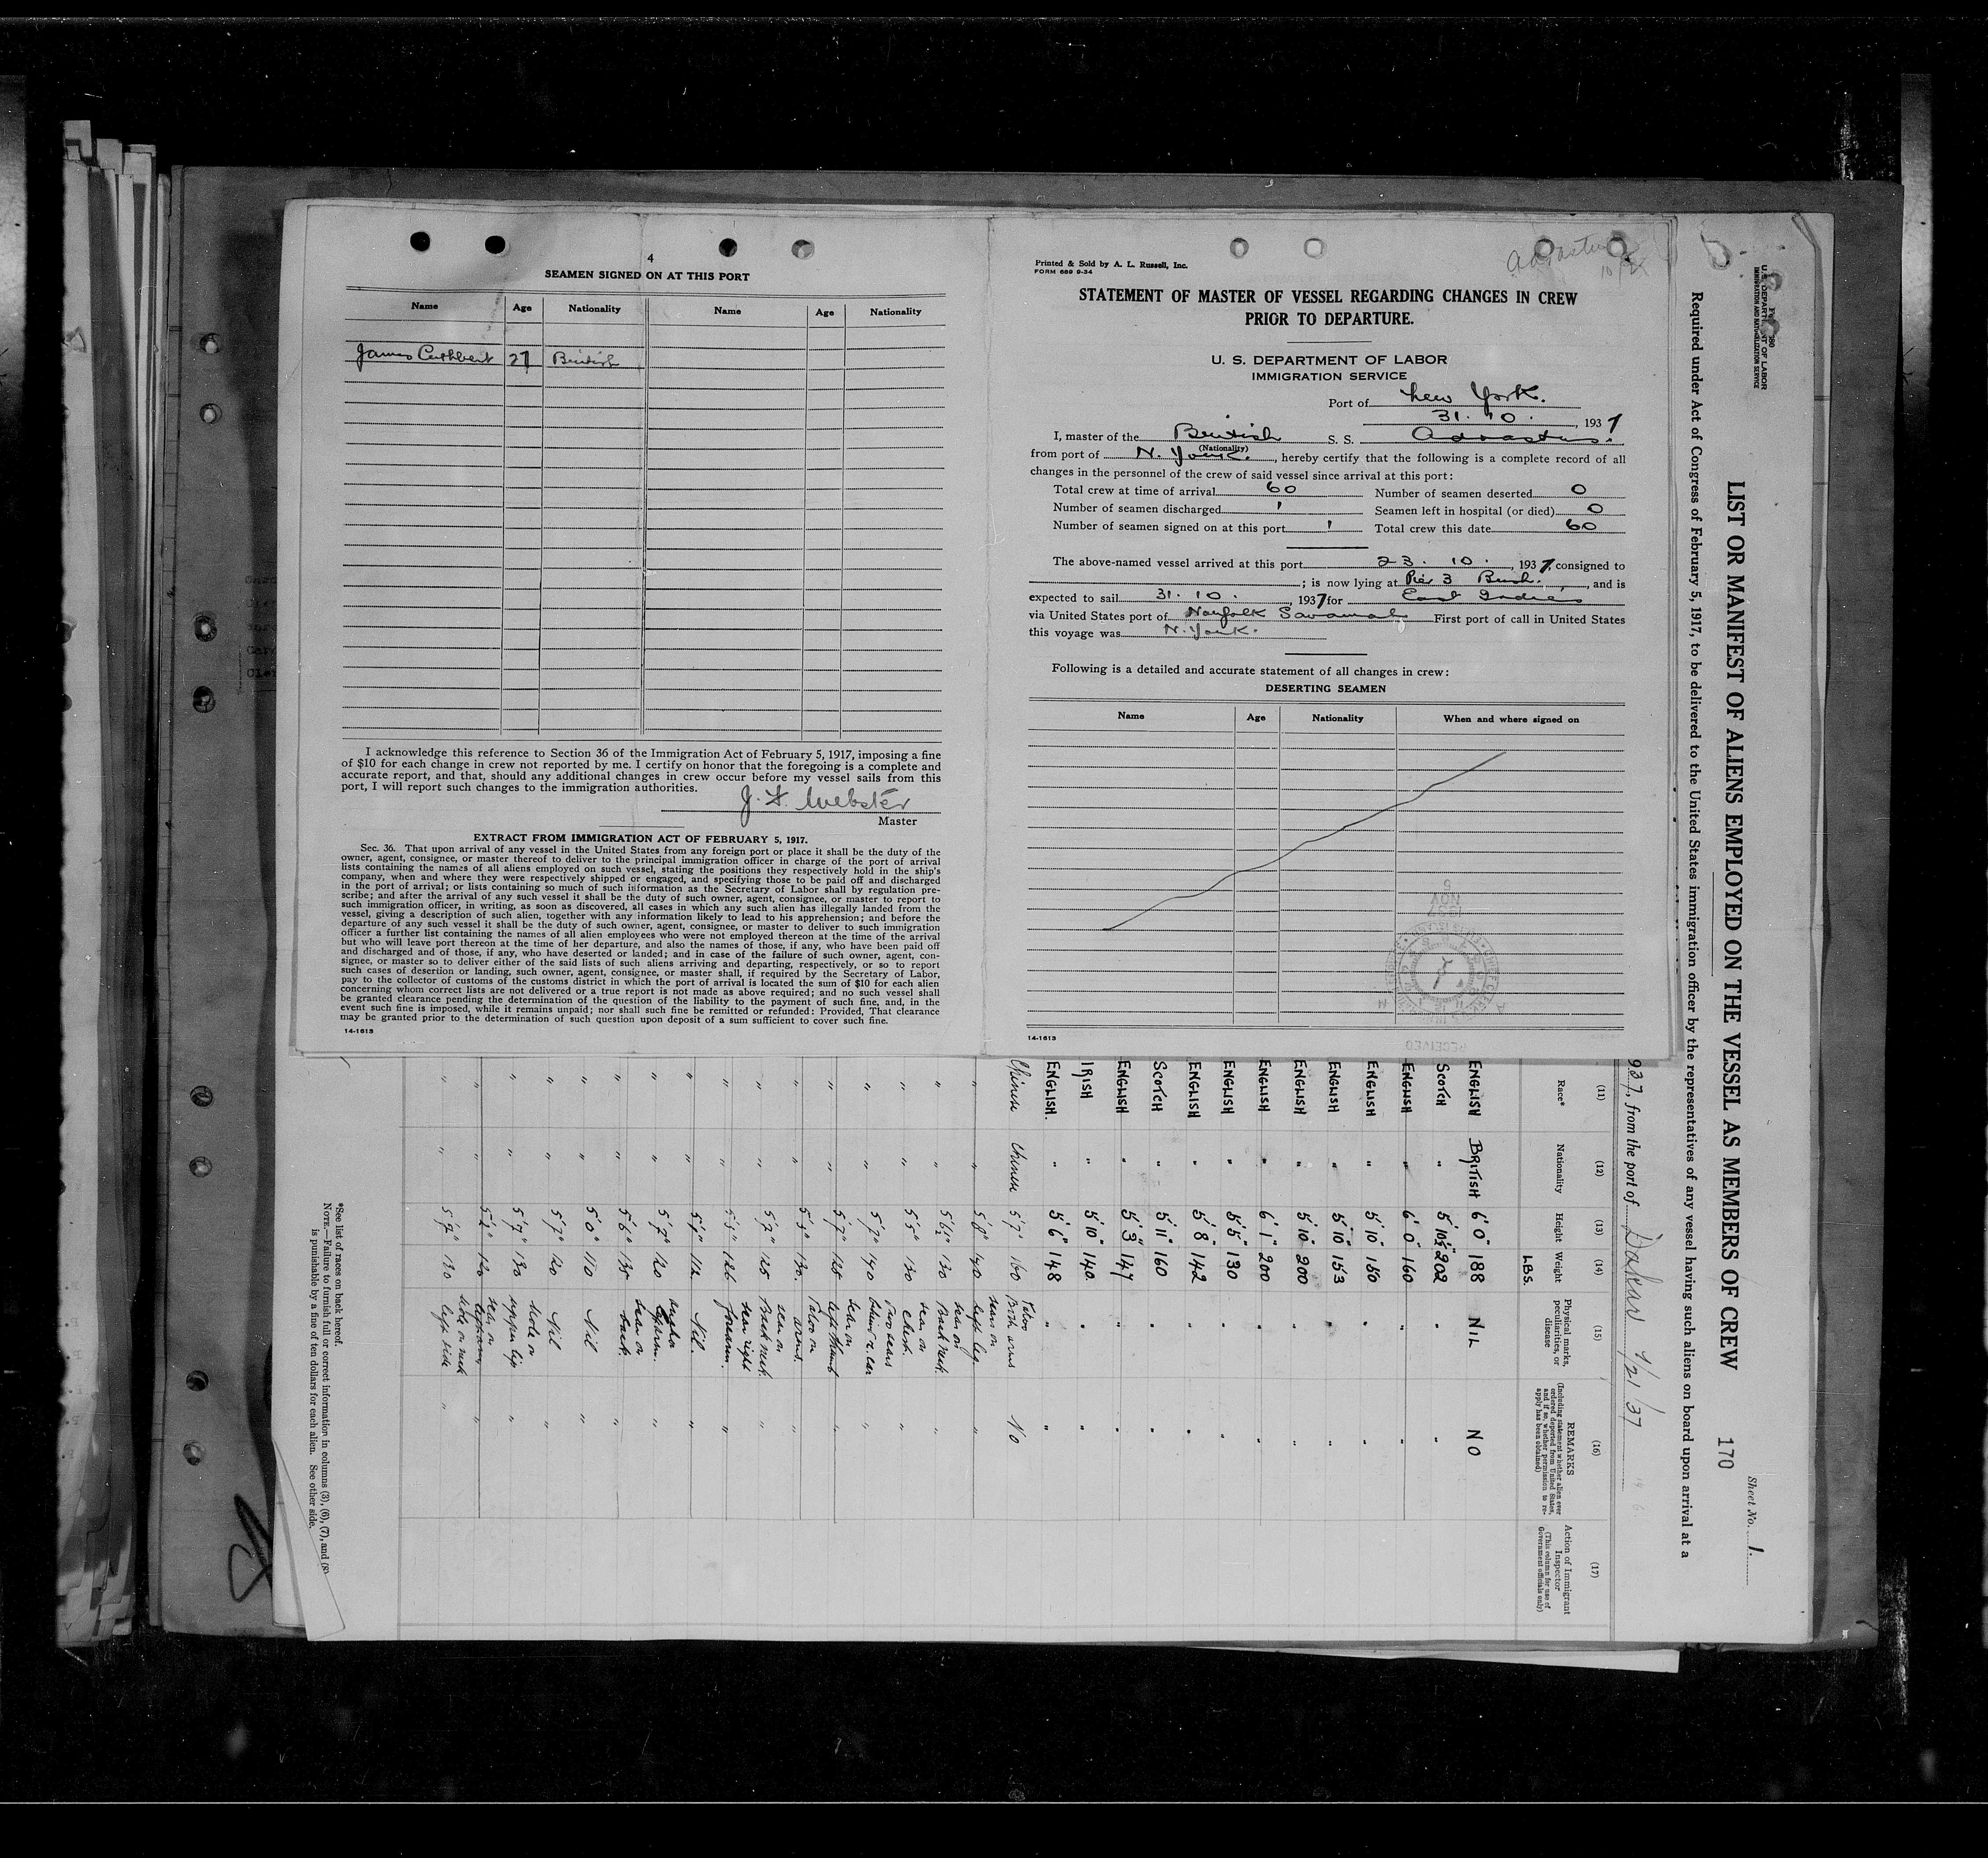 4
SEAMEN SIGNED ON AT THIS PORT
Name Age Nationality Name Age Nationality
James Cuthbert 27 British
I acknowledge this reference to Section 36 of the Immigration Act of February 5, 1917, imposing a fine
of $10 for each change in crew not reported by me. I certify on honor that the foregoing is a complete and
accurate report, and that, should any additional changes in crew occur before my vessel sails from this
port, I will report such changes to the immigration authorities.
Webster
Master
EXTRACT FROM IMMIGRATION ACT OF FEBRUARY 5, 1917.
Sec. 36. That upon arrival of any vessel in the United States from any foreign port or place it shall be the duty of the
owner, agent, consignee, or master thereof to deliver to the principal immigration officer in charge of the port of arrival
lists containing the names of all aliens employed on such vessel, stating the positions they respectively hold in the ship's
company, when and where they were respectively shipped or engaged, and specifying those to be paid off and discharged
in the port of arrival; or lists containing so much of such information as the Secretary of Labor shall by regulation pre-
scribe; and after the arrival of any such vessel it shall be the duty of such owner, agent, consignee, or master to report to
such immigration officer, in writing, as soon as discovered, all cases in which any such alien has illegally landed from the
vessel, giving a description of such alien, together with any information likely to lead to his apprehension; and before the
departure of any such vessel it shall be the duty of such owner, agent, consignee, or master to deliver to such immigration
officer a further list containing the names of all alien employees who were not employed thereon at the time of the arrival
but who will leave port thereon at the time of her departure, and also the names of those, if any, who have been paid off
and discharged and of those, if any, who have deserted or landed; and in case of the failure of such owner, agent, con-
signee, or master so to deliver either of the said lists of such aliens arriving and departing, respectively, or so to report
such cases of desertion or landing, such owner, agent, consignee, or master shall, if required by the Secretary of Labor,
pay to the collector of customs of the customs district in which the port of arrival is located the sum of $10 for each alien
concerning whom correct lists are not delivered or a true report is not made as above required; and no such vessel shall
be granted clearance pending the determination of the question of the liability to the payment of such fine, and, in the
event such fine is imposed, while it remains unpaid; nor shall such fine be remitted or refunded: Provided, That clearance
may be granted prior to the determination of such question upon deposit of a sum sufficient to cover such fine.
14-1613
Adrastus
Printed & Sold by A. L. Russell, Inc.
FORM 689 9-34
STATEMENT OF MASTER OF VESSEL REGARDING CHANGES IN CREW
PRIOR TO DEPARTURE.
U. S. DEPARTMENT OF LABOR
IMMIGRATION SERVICE
Port of New York.
31. 10. , 1937
I, master of the British S. S. Adrastus.
(Nationality)
from port of N. York. , hereby certify that the following is a complete record of all
changes in the personnel of the crew of said vessel since arrival at this port:
Total crew at time of arrival 60 Number of seamen deserted 0
Number of seamen discharged 1 Seamen left in hospital (or died) 0
Number of seamen signed on at this port 1 Total crew this date 60
The above-named vessel arrived at this port 23. 10. , 1937, consigned to
; is now lying at Pier 3 Bush. , and is
expected to sail 31. 10. , 1937 for East Indies
via United States port of Norfolk Savannah First port of call in United States
this voyage was N. York.
Following is a detailed and accurate statement of all changes in crew:
DESERTING SEAMEN
Name Age Nationality When and where signed on
RECEIVED
1937
NOV
5
14-1613
U. S. DEPARTMENT OF LABOR
IMMIGRATION AND NATURALIZATION SERVICE
Sheet No. 1.
LIST OR MANIFEST OF ALIENS EMPLOYED ON THE VESSEL AS MEMBERS OF CREW 170
Required under Act of Congress of February 5, 1917, to be delivered to the United States immigration officer by the representatives of any vessel having such aliens on board upon arrival at a
937, from the port of Dakar 9/21/37
(11) (12) (13) (14) (15) (16) (17)
Race* Nationality Height Weight Physical marks, peculiarities, or disease REMARKS (Including statement whether alien ever ordered deported from United States, and if so, whether permission to re-apply has been obtained) Action of Immigrant Inspector (This column for use of Government officials only)
LBS.
ENGLISH BRITISH 6' 0" 188 NIL NO
SCOTCH " 5' 10½" 202 " "
ENGLISH " 6' 0" 160 " "
ENGLISH " 5' 10" 150 " "
ENGLISH " 5' 10" 153 " "
ENGLISH " 5' 10" 200 " "
ENGLISH " 6' 1" 200 " "
ENGLISH " 5' 5" 130 " "
ENGLISH " 5' 8" 142 " "
SCOTCH " 5' 11" 160 " "
ENGLISH " 5' 3" 147 " "
IRISH " 5' 10" 140 " "
ENGLISH. " 5' 6" 148 " "
Chinese Chinese 5' 7" 160 Both arms NO
" " 5' 8" 140 scar on left leg "
" " 5' 6½" 130 scar on Back neck. "
" " 5' 5" 130 scar on chest. "
" " 5' 7" 140 Two scars behind r. ear "
" " 5' 7" 125 scar on left thumb "
" " 5' 5" 130. Tatoo on arms. "
" " 5' 7" 125 scar on Back neck. "
" " 5' 5" 126 scar right forearm. "
" " 112 Nil. "
" " 5' 7" 120 "
" " 5' 6" 135 scar on back. "
" " 5' 0" 110 Nil "
" " 5' 7" 120 Nil "
" " 5' 7" 130 mole on upper lip "
" " 120 scar on "
" " 130 mole on neck left side "
*See list of races on back hereof.
NOTE.—Failure to furnish full or correct information in columns (3), (6), (7), and (8)
is punishable by a fine of ten dollars for each alien. See other side.